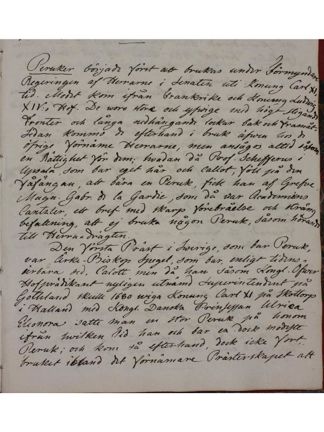 Peruker började först att brukas under Förmyndare
Regeringen af Herrarne i Senaten uti Konung Carl XI
tid. Modet kom ifrån Frankrike och Konung Ludvig
XIV:s Hof. De woro stora och yfwige med högt stigande
Fronter och långa nedhängande lockar bak och framåt.
Sedan kommo de efterhand i bruk äfwen hos de
öfrige förnäme Herrarne, men ansågos altid såsom
en Rättighet för dem; hwadan då Prof. Schefferus i
Upsala som bar eget hår och calott, föll på den
fåfängan, att bära en Peruk, fick han af Grefwe
Magn. Gabr. de la Gardie, som då war Academiens
Cantzler, ett bref med skarp föreställelse och sträng
befallning, att ej bruka någon Peruk, såsom hörande
till Herredrägten.
Den första Präst i Swerige, som bar Peruk,
war Ärke Biskop Spegel, som bar, enligt tidens
sed, Calott men då han såsom Kongl. Öfwer
Hofpredikant nyligen utnämd Superintendent på
Gottland skulle 1680 wiga Konung Carl XI på Skottorp
i Halland med Kongl. Danska Prinsessan Ulrica
Eleonora satte man en stor Peruk på honom
ifrån hwilken tid han och bar en dock modeste
Peruk; och kom så efterhand, dock icke fort
bruket ibland det förnämare Prästerskapet att